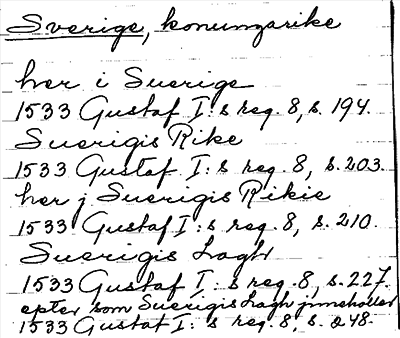 Sverige, konungarike
her i Suerige
1533 Gustaf I:s reg. 8, s. 194.
Suerigis Rike
1533 Gustaf I:s reg. 8, s. 203.
her j Suerigis Rikie
1533 Gustaf I:s reg. 8, s. 210.
Suerigis Lagh
1533 Gustaf I:s reg. 8, s. 227.
epter som Suerigis Lagh jnnehåller
1533 Gustaf I:s reg. 8, s. 248.